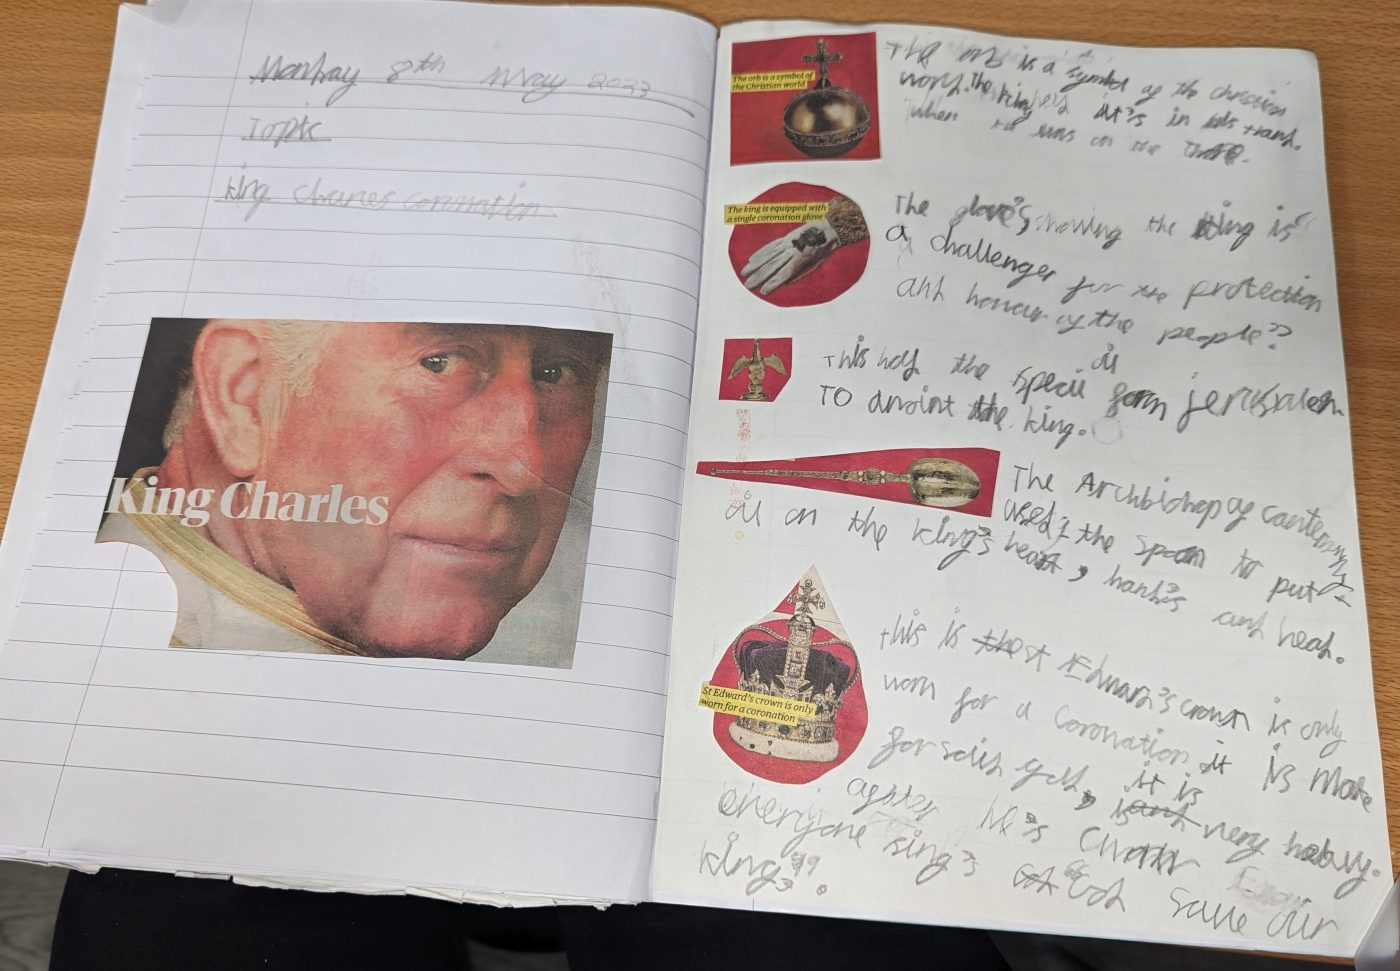 Monday 8th May 2023
Topic
King Charles coronation
King Charles
The orb is a symbol of
the Christian world
The orb is a symbol of the christian
world. the king held it in his hand.
when he was on the
The king is equipped with
a single coronation glove
The glove's showing the king is
a challenger for the protection
and honour of the people?
oil
This hold the specil form jerusalem
TO anoint the king.
The Archbishop of canterbury
used the spoon to put
oil on the king's heart, hand's and head.
St Edward's crown is only
worn for a coronation
this is the st Edward's crown is only
worn for a coronation it is made
for solid gold, it is
is and very heavy.
after he's
everyone sing's God "God save our
king".